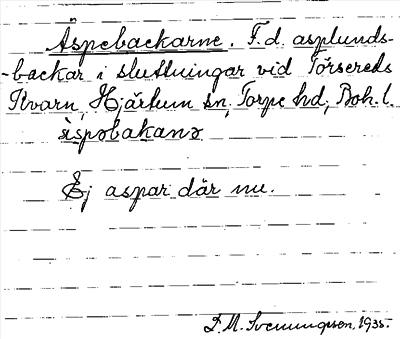 Äspebackarne. F.d. asplunds-
-backar i sluttningar vid Törsereds
Kvarn, Hjärtum sn, Torpe hd, Boh.l.
ä̀spəbakanə
Ej aspar där nu.
D.M. Svenungsson, 1935.